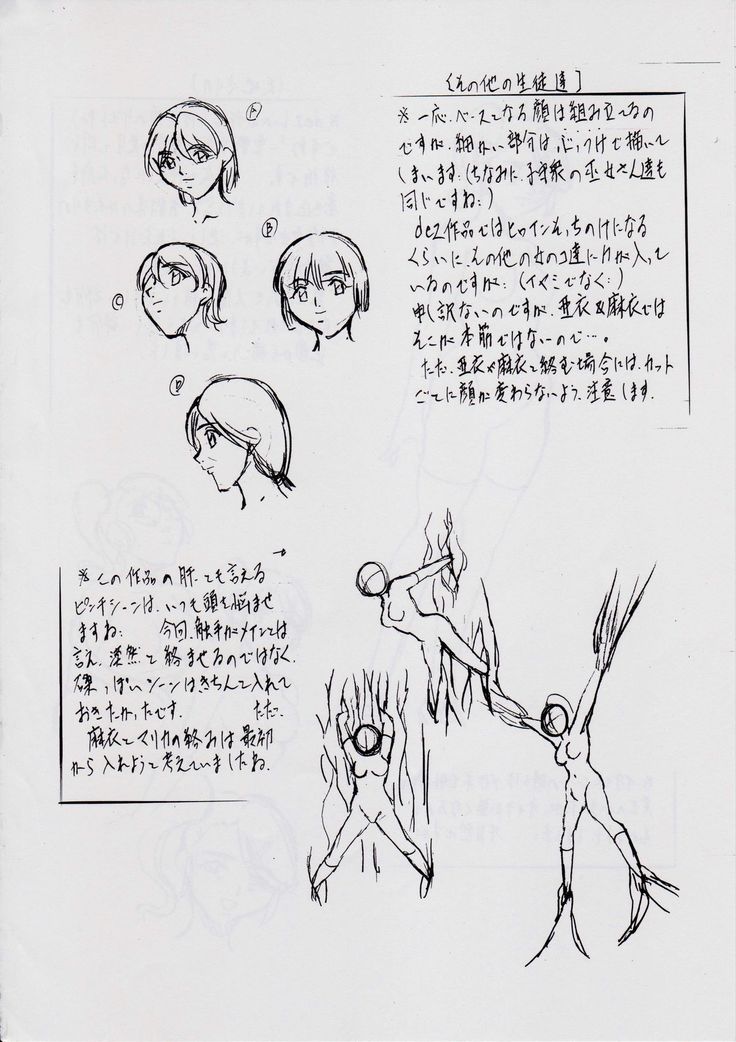 [その他の生徒達]
※一応、ベースとなる顔は組み立てるの
ですが、細かい部分は、心づけで描いて
しまいます。(ちなみに、子守衆の巫女さん達も
同じですね:)
de2作品ではヒロインそっちのけになる
くらいに、その他の女のコ達に力が入って
いるのですが、(イヤミでなく:)
申し訳ないのですが、亜衣&麻衣では
そこが本筋ではないので…。
ただ、亜衣や麻衣と絡む場合には、カット
ごとに顔が変わらないよう、注意します。
A
B
C
D
※この作品の肝とも言える
ピンチシーンは、いつも頭を悩ませ
ますね: 今回、触手がメインとは
言え、漠然と絡ませるのではなく、
磔っぽいシーンはきちんと入れて
おきたかったです。 ただ、
麻衣とマリカの絡みは最初
から入れようと考えていましたね。